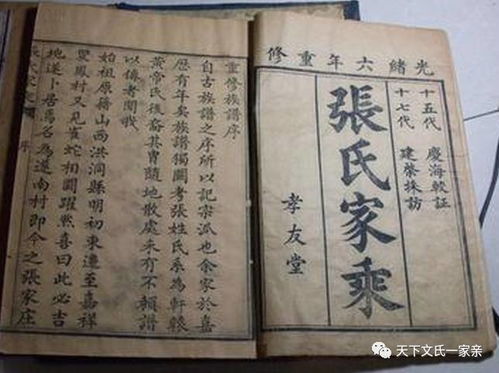 光緒六年重修
十五代 慶海較証
十七代 建榮採訪
張氏家乘
孝友堂
重修族譜序
自古族譜之序所以記宗派也余家於嘉
歷有年矣族譜獨闕考張姓氏系為軒轅
黃帝氏後裔其胄隨地散處未有不賴譜
以備考閱哉
始祖原籍山西洪洞縣明初東遷至嘉祥
鳳村又見雀蛇相鬬躍然喜曰此必吉
地遂卜居焉名為遂南村即今之張家庄
序
天下文氏一家亲